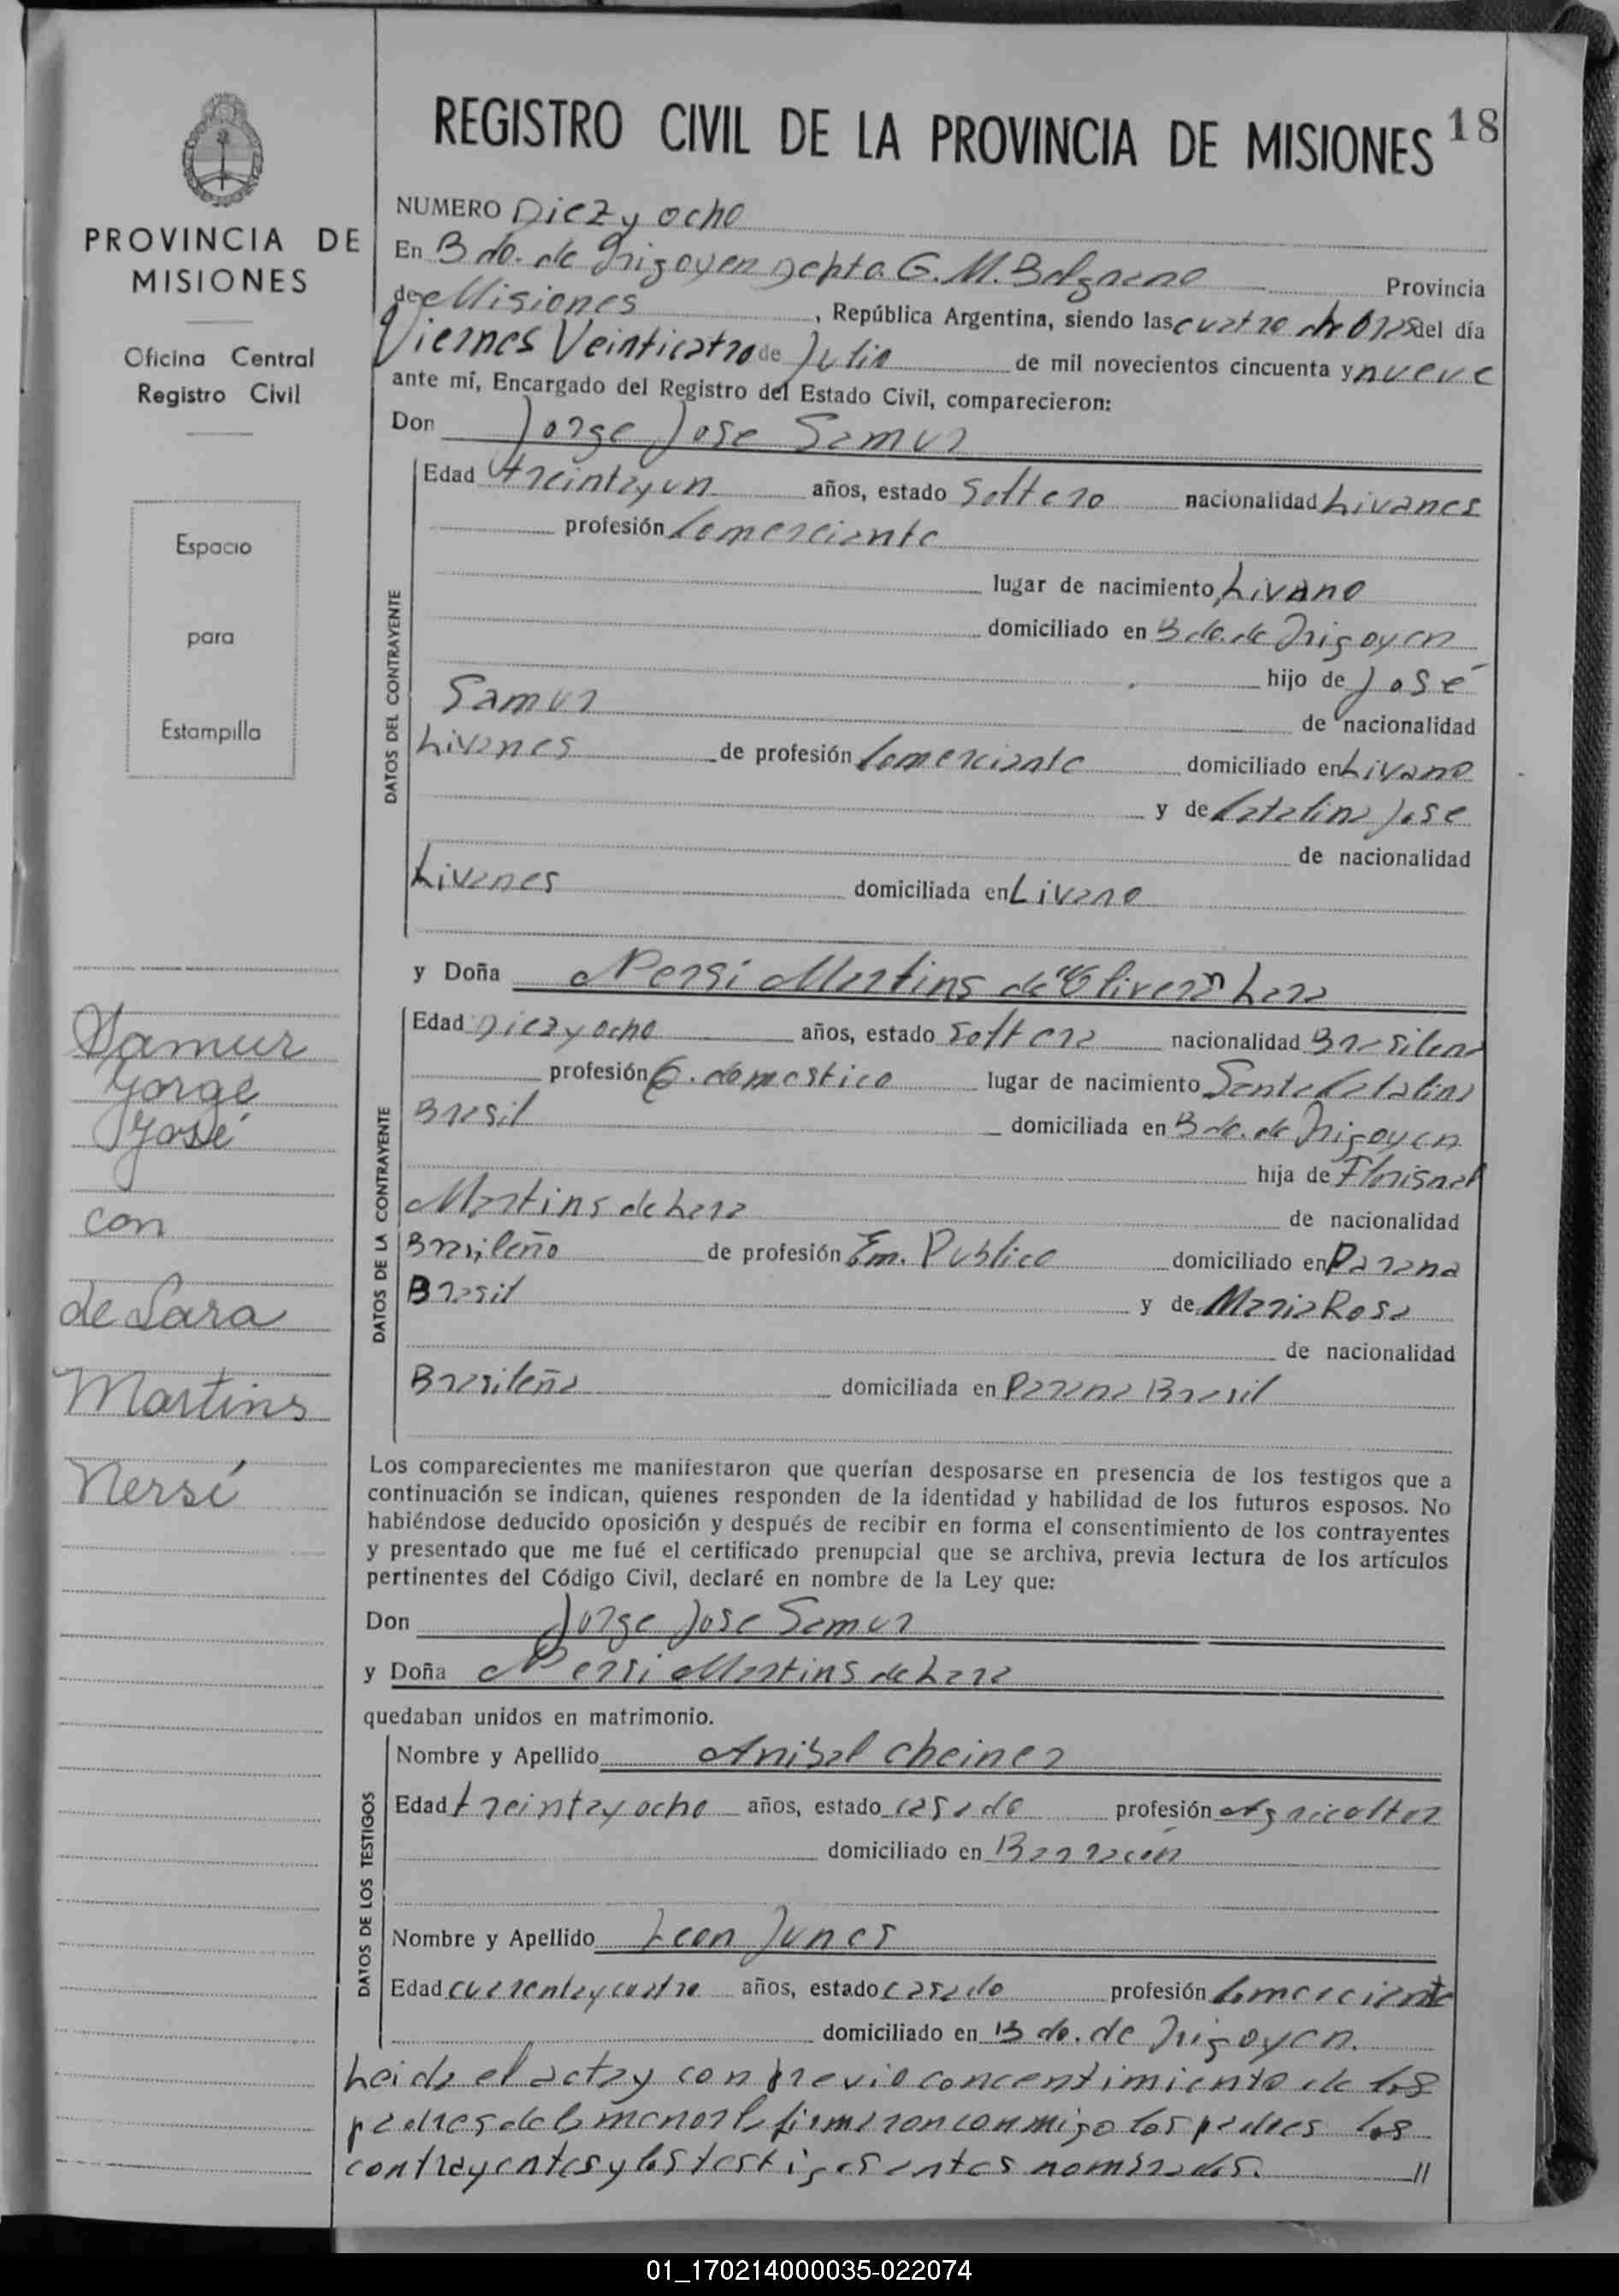 REGISTRO CIVIL DE LA PROVINCIA DE MISIONES 18
PROVINCIA DE
MISIONES
Oficina Central
Registro Civil
Espacio
para
Estampilla
Samur
Jorge
José
con
de Lara
Martins
Nersi
NUMERO Diez y ocho
En Bdo. de Irigoyen Depto G. M. Belgrano Provincia
de Misiones, República Argentina, siendo las cuatro de oras del día
Viernes Veinticatro de Julio de mil novecientos cincuenta y nueve
ante mí, Encargado del Registro del Estado Civil, comparecieron:
Don Jorge Jose Samur
DATOS DEL CONTRAYENTE
Edad treinta y un años, estado Soltero nacionalidad Livanes
profesión Comerciante
lugar de nacimiento, Livano
domiciliado en Bdo. de Irigoyen
hijo de José
Samur de nacionalidad
Livanes de profesión Comerciante domiciliado en Livano
y de Catalina Jose
de nacionalidad
Livanes domiciliada en Livano
y Doña Nersi Martins de "Olivera" Lara
DATOS DE LA CONTRAYENTE
Edad Diez y ocho años, estado Soltera nacionalidad Brasilena
profesión Q. domestico lugar de nacimiento Santa Catalina
Brasil domiciliada en Bdo. de Irigoyen
hija de Florisnal
Martins de Lara de nacionalidad
Brasileño de profesión Em. Publico domiciliado en Parana
Brasil y de Maria Rosa
de nacionalidad
Brasileña domiciliada en Parana Brasil
Los comparecientes me manifestaron que querían desposarse en presencia de los testigos que a
continuación se indican, quienes responden de la identidad y habilidad de los futuros esposos. No
habiéndose deducido oposición y después de recibir en forma el consentimiento de los contrayentes
y presentado que me fué el certificado prenupcial que se archiva, previa lectura de los artículos
pertinentes del Código Civil, declaré en nombre de la Ley que:
Don Jorge Jose Samur
y Doña Nersi Martins de Lara
quedaban unidos en matrimonio.
DATOS DE LOS TESTIGOS
Nombre y Apellido Anibal Cheiner
Edad treinta y ocho años, estado casado profesión Agricoltor
domiciliado en Barracón
Nombre y Apellido Leon Junes
Edad cuarenta y cuatro años, estado casado profesión Comerciante
domiciliado en Bdo. de Irigoyen.
Leida el acta y con previo concentimiento de los
padres de la menor la firmaron conmigo los padres los
contrayentes y los testigos antes nombrados. //
01_170214000035-022074